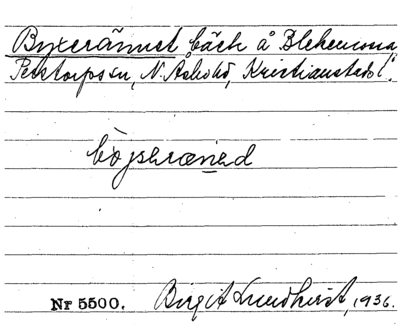 Byxerännet bäck å Blekemosa
Perstorps sn, N. Åsbohd, Kristianstads l.
Nr 5500. Birgit Lundkvist, 1936.